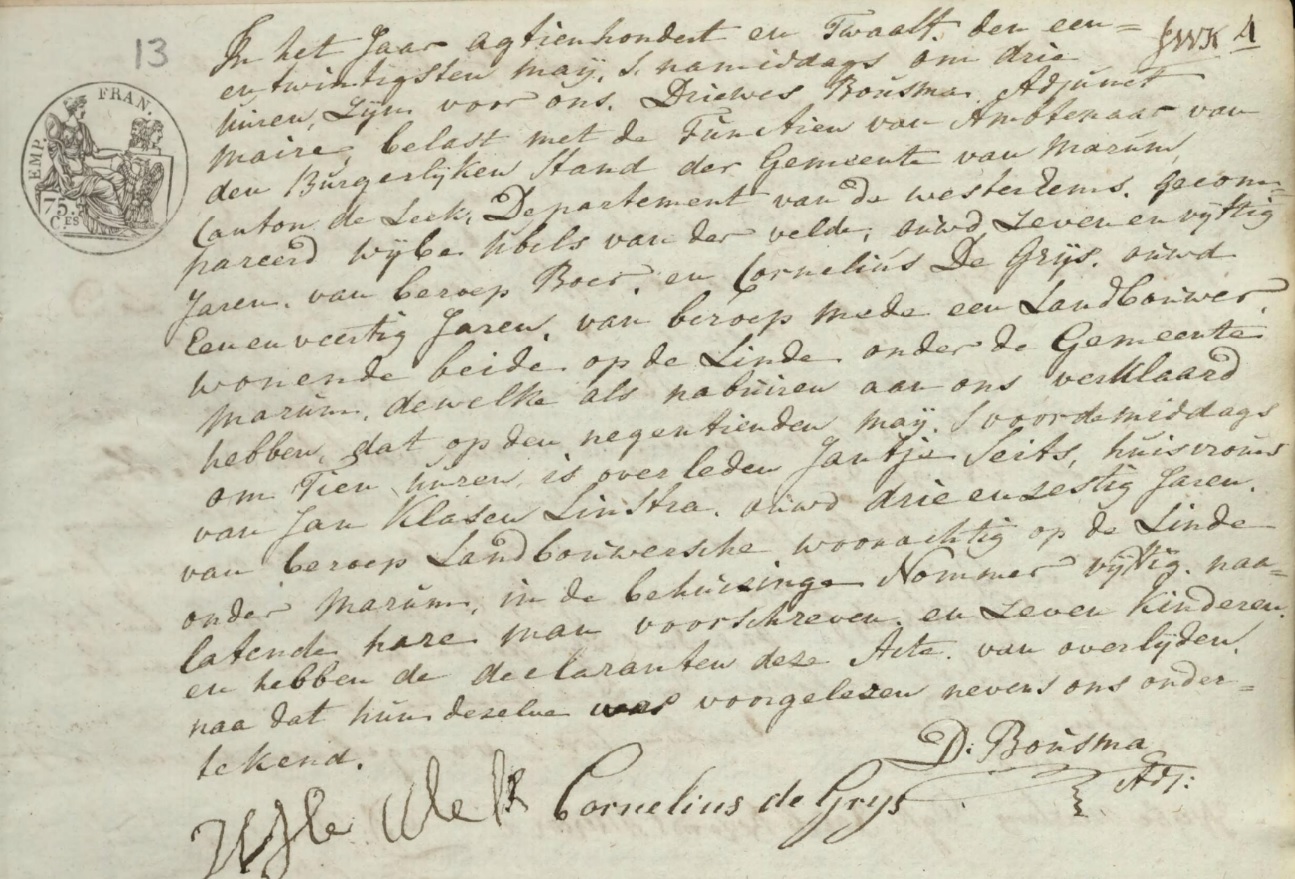 13
JWK 4
EMP. FRAN.
75 CES
In het Jaar agtienhondert en Twaalf, den een=
entwintigsten maÿ, s. namiddags om drie
üüren, Zÿn voor ons. Driewes Boüsma. Adjünct
Maire, belast met de Functien van Ambtenaar van
den Bürgerlÿken Stand der Gemeente van Marüm,
Canton de Leek, Departement van de westerEems. gecom=
pareerd wÿbe Ubels van der velde, oüwd, zeven en vÿftig
Jaren. van beroep Boer, en Cornelius De Grÿs. oüwd
Eenenveertig Jaren, van beroep mede een Landboüwer,
wonende beide op de Linde onder de Gemeente
Marüm. dewelke als nabüiren aan ons verklaard
hebben, dat op den negentienden maÿ. S voordemiddags
om Tien üüren, is overleden Jantje Seits, hüisvroüw
van Jan Klasen Linstra. oüwd drie en zestig Jaren.
van beroep Landboüwersche woonachtig op de Linde
onder Marüm, in de behüizinge Nommer vÿftig. naa=
latende hare man voorschreven. en zeven Kinderen.
en hebben de declaranten deze Acte. van overlÿden.
naa dat hün dezelve was voorgelezen nevens ons onder=
tekend.
D. Boüsma
Adj:
Cornelius de Grÿs